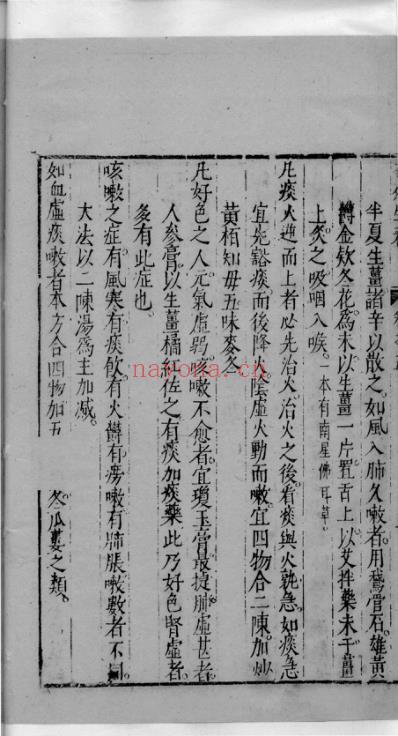 半夏生薑諸辛以散之如風入肺久嗽者用鵞管石雄黃
欝金欵冬花爲末以生薑一片置舌上以艾拌藥末于薑
上灸之吸咽入喉一本有南星佛耳草
凡痰火逆而上者必先治火治火之後看痰與火孰急如痰急
宜先豁痰而後降火陰虛火動而嗽宜四物合二陳加炒
黃栢知毋五味麥冬
凡好色之人元氣虛弱咳嗽不愈者宜瓊玉膏最捷肺虛甚者
人參膏以生薑橘紅佐之有痰加痰藥此乃好色腎虛者
多有此症也
咳嗽之症有風寒有痰飲有火欝有勞嗽有肺脹嗽數者不同
大法以二陳湯爲主加减
如血虛痰嗽者本方合四物加五 冬瓜蔞之類
nayona.cn